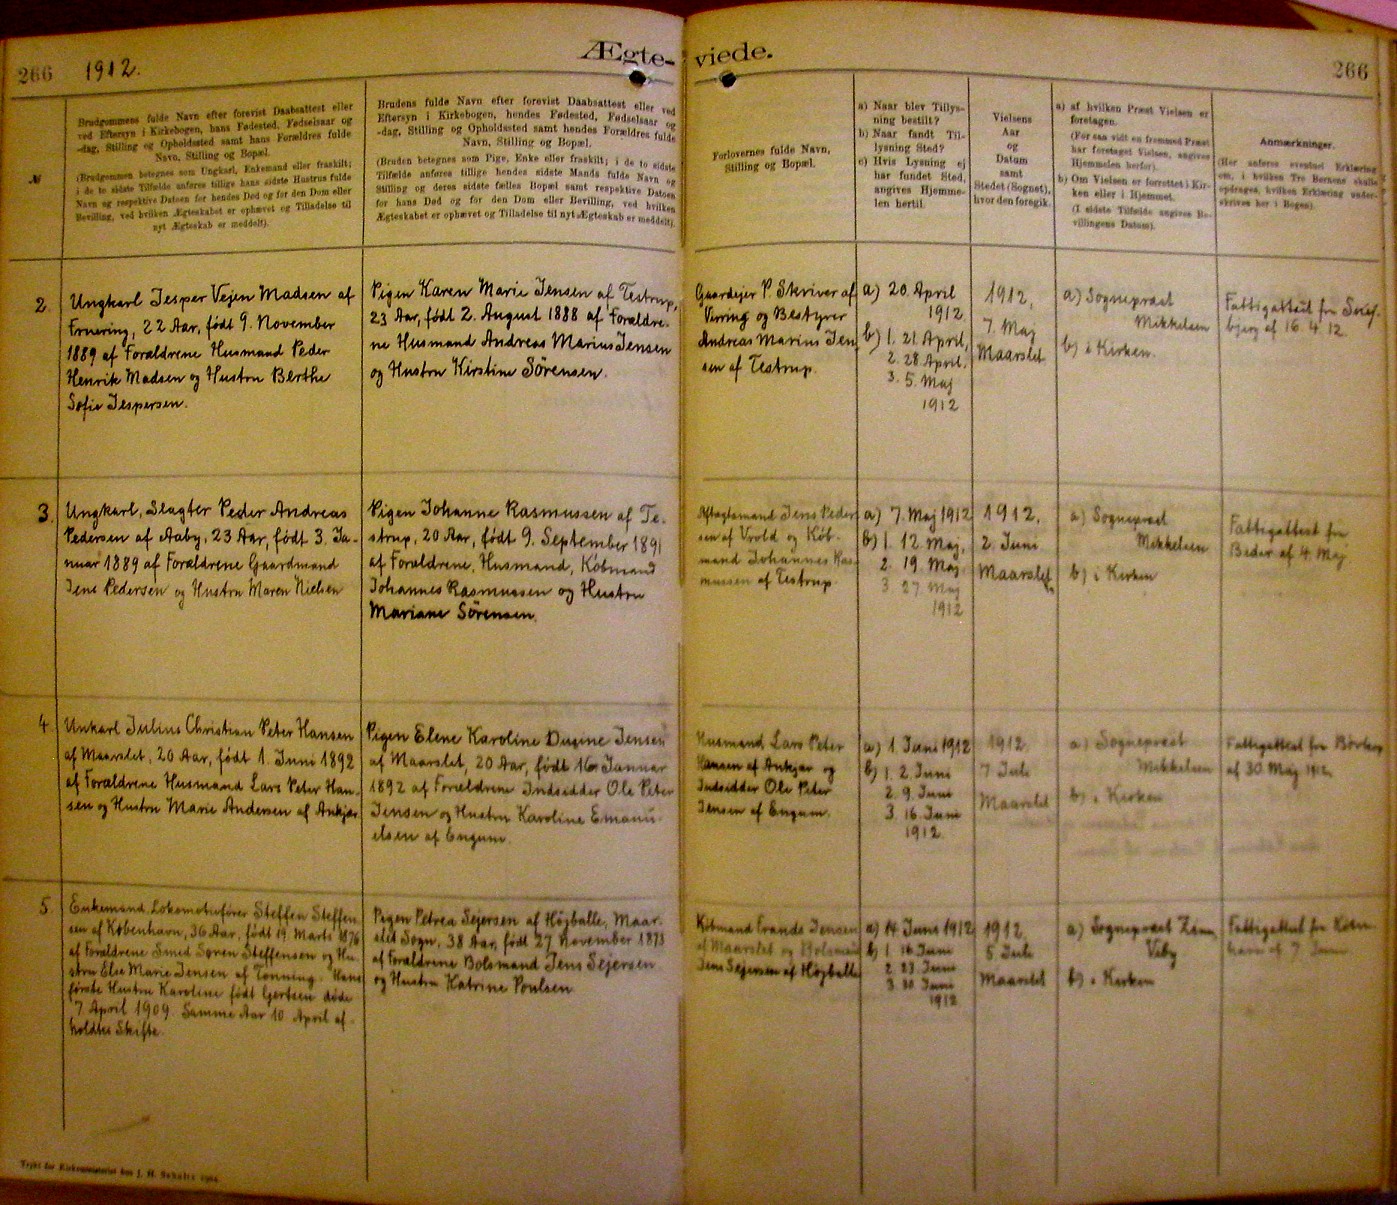 266 1912. Ægte-
viede. 266
№
Brudgommens fulde Navn efter forevist Daabsattest eller
ved Eftersyn i Kirkebogen, hans Fødested, Fødselsaar og
-dag, Stilling og Opholdssted samt hans Forældres fulde
Navn, Stilling og Bopæl.
(Brudgommen betegnes som Ungkarl, Enkemand eller fraskilt;
i de to sidste Tilfælde anføres tillige hans sidste Hustrus fulde
Navn og respektive Datoen for hendes Død og for den Dom eller
Bevilling, ved hvilken Ægteskabet er ophævet og Tilladelse til
nyt Ægteskab er meddelt).
Brudens fulde Navn efter forevist Daabsattest eller ved
Eftersyn i Kirkebogen, hendes Fødested, Fødselsaar og
-dag, Stilling og Opholdssted samt hendes Forældres fulde
Navn, Stilling og Bopæl.
(Bruden betegnes som Pige, Enke eller fraskilt; i de to sidste
Tilfælde anføres tillige hendes sidste Mands fulde Navn og
Stilling og deres sidste fælles Bopæl samt respektive Datoen
for hans Død og for den Dom eller Bevilling, ved hvilken
Ægteskabet er ophævet og Tilladelse til nyt Ægteskab er meddelt).
Forlovernes fulde Navn,
Stilling og Bopæl.
a) Naar blev Tillys-
ning bestilt?
b) Naar fandt Til-
lysning Sted?
c) Hvis Lysning ej
har fundet Sted,
angives Hjemme-
len hertil.
Vielsens
Aar
og
Datum
samt
Stedet (Sognet),
hvor den foregik.
a) af hvilken Præst Vielsen er
foretagen.
(For saa vidt en fremmed Præst
har foretaget Vielsen, angives
Hjemmelen herfor).
b) Om Vielsen er forrettet i Kir-
ken eller i Hjemmet.
(I sidste Tilfælde angives Be-
villingens Datum).
Anmærkninger.
(Her anføres eventuel Erklæring
om, i hvilken Tro Børnene skulle
opdrages, hvilken Erklæring under-
skrives her i Bogen).
2.
Ungkarl Jesper Vejen Madsen af
Fruering, 22 Aar, født 9. November
1889 af Forældrene Husmand Peder
Henrik Madsen og Hustru Berthe
Sofie Jespersen.
Pigen Karen Marie Jensen af Testrup,
23 Aar, født 2. August 1888 af Forældre-
ne Husmand Andreas Marius Jensen
og Hustru Kirstine Sörensen.
Gaardejer P. Skriver af
Virring og Bestyrer
Andreas Marius Jen
sen af Testrup.
a) 20. April
1912
b) 1. 21. April,
2. 28. April.
3. 5. Maj
1912
1912,
7. Maj
Maarslet
a) Sognepræst
Mikkelsen
b) i Kirken.
Fattigattest fra
bjerg af 16. 4. 12.
3.
Ungkarl, Slagter Peder Andreas
Pedersen af Aaby, 23 Aar, født 3. Ja-
nuar 1889 af Forældrene Gaardmand
Jens Pedersen og Hustru Maren Nielsen
Pigen Johanne Rasmussen af Te-
strup, 20 Aar, født 9. September 1891
af Forældrene, Husmand, Købmand
Johannes Rasmussen og Hustru
Mariane Sörensen.
Aftægtsmand Jens Peder
sen af Vrold og Köb-
mand Johannes Ras-
mussen af Testrup.
a) 7. Maj 1912
b) 1. 12. Maj.
2. 19. Maj.
3. 27. Maj
1912
1912,
2. Juni
Maarslet
a) Sognepræst
Mikkelsen
b) i Kirken
Fattigattest fra
af 4. Maj
4.
Unkarl Julius Christian Peter Hansen
af Maarslet, 20 Aar, født 1. Juni 1892
af Forældrene Husmand Lars Peter Han-
sen og Hustru Marie Andersen af Ankjær
Pigen Elene Karoline Dusine Jensen
af Maarslet, 20 Aar, født 16. Januar
1892 af Forældrene Indsidder Ole Peter
Jensen og Hustru Karoline Emanu-
elsen af Engum.
Husmand Lars Peter
Hansen af Ankjær og
Indsidder Ole Peter
Jensen af Engum.
a) 1. Juni 1912
b) 1. 2. Juni
2. 9. Juni
3. 16. Juni
1912.
1912
7 Juli
Maarslet
a) Sognepræst
Mikkelsen
b) i Kirken
Fattigattest fra
af 30 Maj 1912.
5.
Enkemand, Lokomotivfører Steffen Steffen-
sen af København, 36 Aar, født 19. Marts 1876
af Forældrene Smed Søren Steffensen og Hu-
stru Else Marie Jensen af Tønning. Hans
første Hustru Karoline født Gertsen døde
7 April 1909. Samme Aar 10 April af-
holdtes Skifte.
Pigen Petrea Sejersen af Höjballe, Maar-
slet Sogn, 38 Aar, født 27 November 1873
af Forældrene Bolsmand Jens Sejersen
og Hustru Katrine Poulsen
Köbmand Jensen
af Maarslet og Bolsmand
Jens Sejersen af Höjballe
a) 14 Juni 1912
b) 1. 16 Juni
2. 23 Juni
3. 30 Juni
1912
1912,
5 Juli
Maarslet
a) Sognepræst
Viby
b) i Kirken
Fattigattest fra Köben-
havn af 7 Juni
Trykt for Kirkeministeriet hos J. H. Schultz